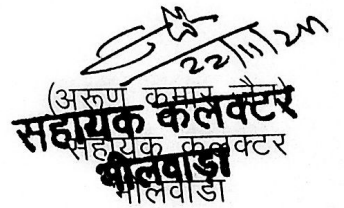 22/11/24
(अरूण कुमार जैन)
सहायक कलक्टर
सहायक कलक्टर
भीलवाड़ा
भीलवाडा